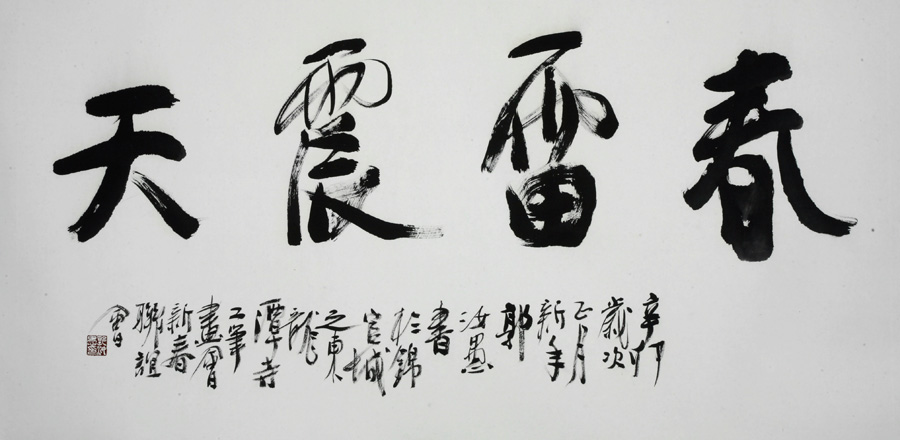 春雷震天
辛卯
歲次
正月
新年
郭
汝愚
書
於錦
官城
之東
龍
潭寺
工筆
畫會
新春
聯誼
會